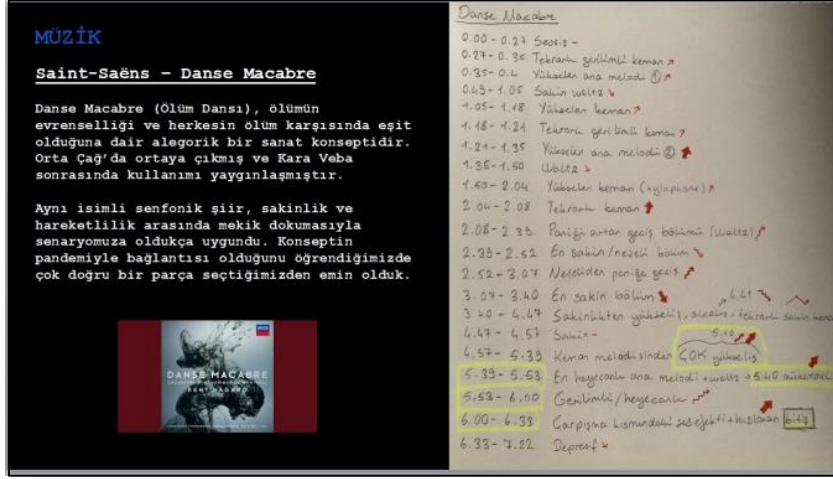 MÜZİK
Saint-Saëns – Danse Macabre
Danse Macabre (Ölüm Dansı), ölümün
evrenselliği ve herkesin ölüm karşısında eşit
olduğuna dair alegorik bir sanat konseptidir.
Orta Çağ'da ortaya çıkmış ve Kara Veba
sonrasında kullanımı yaygınlaşmıştır.
Aynı isimli senfonik şiir, sakinlik ve
hareketlilik arasında mekik dokumasıyla
senaryomuza oldukça uygundu. Konseptin
pandemiyle bağlantısı olduğunu öğrendiğimizde
çok doğru bir parça seçtiğimizden emin olduk.
DANSE MACABRE
KENT NAGANO
Danse Macabre
0.00 - 0.27 Sessiz -
0.27 - 0.35 Tekrarlı gerilimli keman
0.35 - 0.4 Yükselen ana melodi ①
0.43 - 1.05 Sakin waltz
1.05 - 1.18 Yükselen keman
1.18 - 1.21 Tekrarlı gerilimli keman
1.21 - 1.35 Yükselen ana melodi ②
1.35 - 1.50 Waltz
1.50 - 2.04 Yükselen keman (xylophone)
2.04 - 2.08 Tekrarlı keman
2.08 - 2.39 Paniği artan geçiş bölümü (waltz)
2.39 - 2.52 En sakin/neşeli bölüm
2.52 - 3.07 Neşeliden paniğe geçiş
3.07 - 3.40 En sakin bölüm
4.41
3.40 - 4.47 Sakinlikten yükseliş, tekrarlı sakin
4.47 - 4.57 Sakin -
5.10
4.57 - 5.39 Keman melodisinden ÇOK yükseliş
5.39 - 5.53 En heyecanlı ana melodi + waltz → 5.40
5.53 - 6.00 Gerilimli/heyecanlı
6.00 - 6.33 Çarpışma kısmındaki ses efekti + hızlanan bitiş
6.33 - 7.22 Depresif